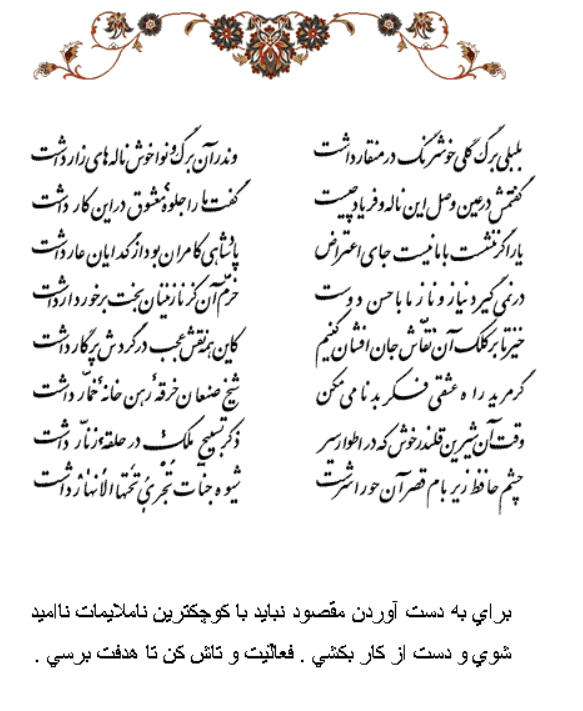 بلبلی برگ گلی خوشرنگ در منقار داشت وندر آن برگ و نوا خوش ناله های زار داشت
گفتمش در عین وصل این ناله و فریاد چیست گفت ما را جلوهٔ معشوق در این کار داشت
یار اگر ننشست با ما نیست جای اعتراض پادشاهی کامران بود از گدایان عار داشت
در نمی گیرد نیاز و ناز ما با حسن دوست خرّم آن کز نازنینان بخت برخوردار داشت
خیز تا بر کلک آن نقّاش جان افشان کنیم کاین همه نقش عجب در گردش پرگار داشت
گر مرید راه عشقی فکر بدنامی مکن شیخ صنعان خرقه رهن خانهٔ خمّار داشت
وقت آن شیرین قلندر خوش که در اطوار سیر ذکر تسبیح ملک در حلقهٔ زنّار داشت
چشم حافظ زیر بام قصر آن حوراسرشت شیوه جنّات تجری تحتها الانهار داشت
براي به دست آوردن مقصود نبايد با كوچكترين ناملايمات نااميد
شوي و دست از كار بكشي . فعالّيت و تاش كن تا هدفت برسي .